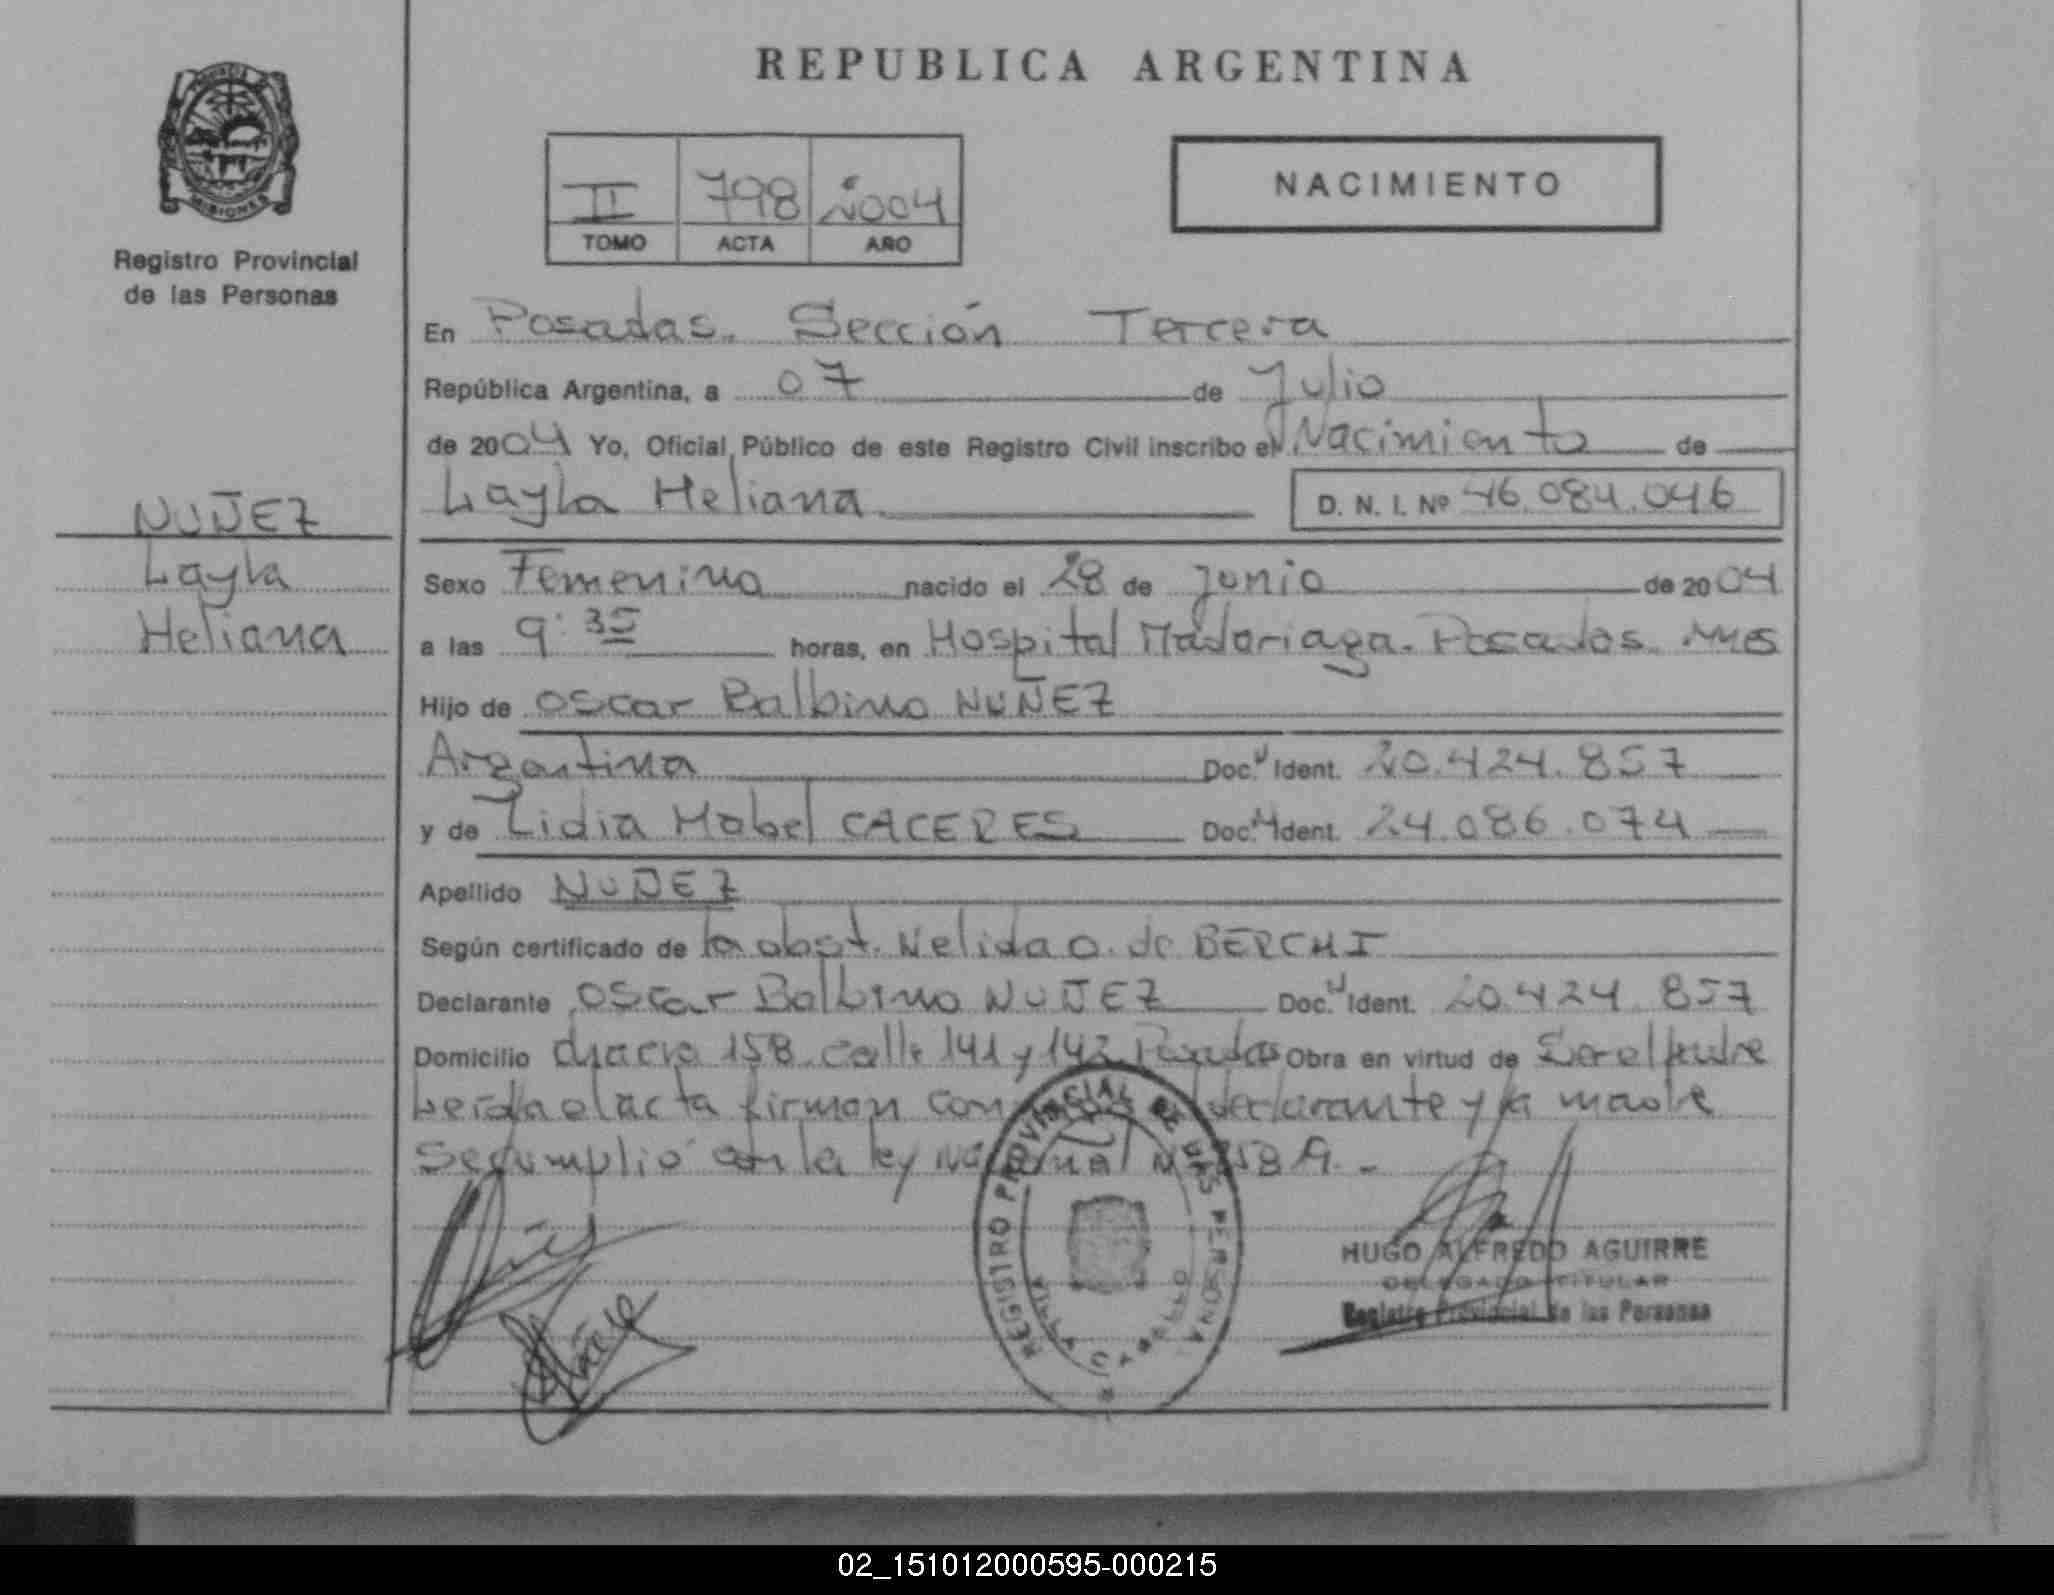 REPUBLICA ARGENTINA
PROVINCIA
MISIONES
Registro Provincial
de las Personas
II 798 2004
TOMO ACTA AÑO
NACIMIENTO
En Posadas. Sección Tercera
República Argentina, a 07 de Julio
de 2004 Yo, Oficial Público de este Registro Civil inscribo el Nacimiento de
Layla Heliana D. N. I. Nº 46.084.046
NUÑEZ
Layla
Heliana
Sexo Femenino nacido el 28 de Junio de 2004
a las 9:35 horas, en Hospital Madariaga. Posadas. Mnes
Hijo de Oscar Balbino NUÑEZ
Argentina Doc. Ident. 20.424.857
y de Lidia Mabel CACERES Doc. Ident. 24.086.074
Apellido NUÑEZ
Según certificado de la obst. Nelida O. de BERCHI
Declarante Oscar Balbino NUÑEZ Doc. Ident. 20.424.857
Domicilio chacra 158 calle 141 y 142 Posadas Obra en virtud de Ser el padre
Leida el acta firman con declarante y la madre
Se cumplió con la ley
REGISTRO PROVINCIAL DE LAS PERSONAS
HUGO ALFREDO AGUIRRE
DELEGADO TITULAR
Registro Provincial de las Personas
02_151012000595-000215